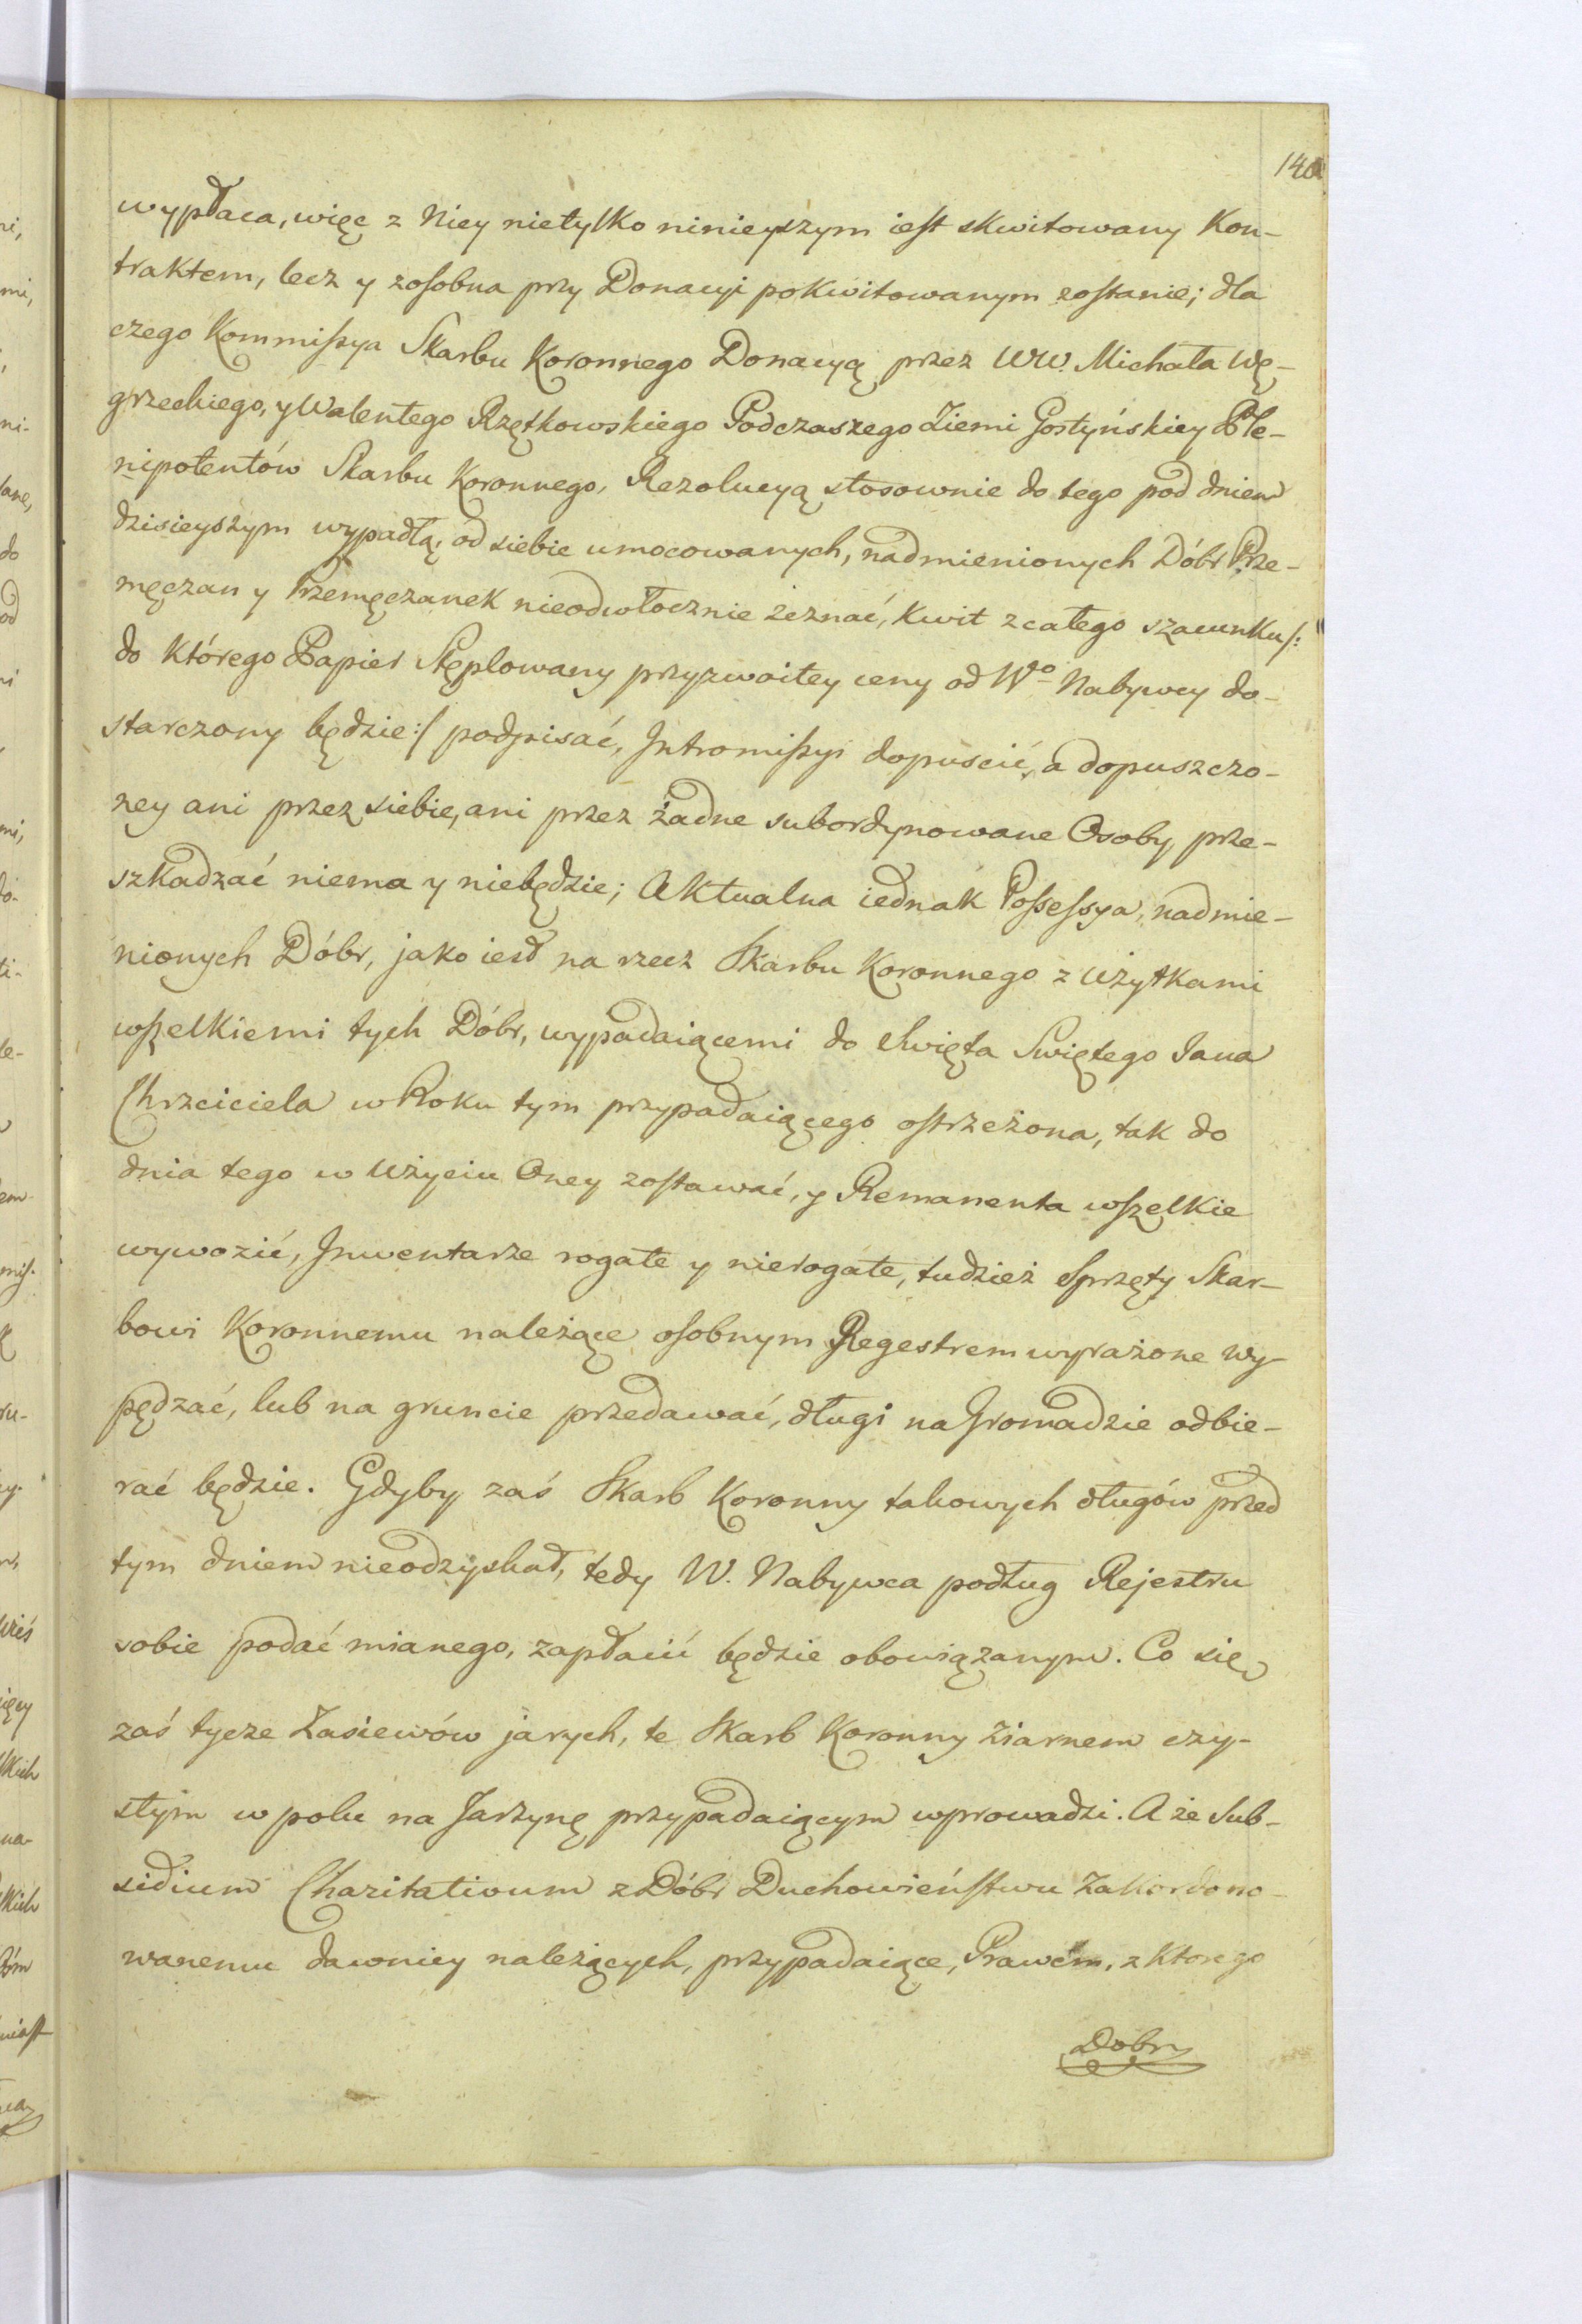 140
wypłaca, więc z Niey nietylko ninieyszym iest skwitowany Kon-
traktem, lecz y zosobna przy Donacyi pokwitowanym zostanie; dla
czego Kommissya Skarbu Koronnego Donacyą przez WW. Michała Wę-
grzeckiego, y Walentego Rzętkowskiego Podczaszego Ziemi Gostyńskiey Ple-
nipotentów Skarbu Koronnego, Rezolucyą stosownie do tego pod dniem
dzisieyszym wypadłą, od siebie umocowanych, nadmienionych Dóbr Prze-
męczan y Przemęczanek nieodwłocznie zeznać, Kwit z całego szacunku /:
do którego Papier Stęplowany przyzwoitey ceny od Wo Nabywcy do-
starczony będzie :/ podpisać, Intromissyi dopuscić, a dopuszczo-
ney ani przez siebie, ani przez żadne subordynowane Osoby, prze-
szkadzać niema y niebędzie; Aktualna iednak Possessya, nadmie-
nionych Dóbr, jako iest na rzecz Skarbu Koronnego z użytkami
wszelkiemi tych Dóbr, wypadaiącemi do Swięta Swiętego Jana
Chrzciciela w Roku tym przypadaiącego ostrzeżona, tak do
dnia tego w Użyciu Oney zostawać, y Remanenta wszelkie
wywozić, Inwentarze rogate y nierogate, tudzież Sprzęty Skar-
bowi Koronnemu należące osobnym Regestrem wyrażone wy-
pędzać, lub na gruncie przedawać, długi na Gromadzie odbie-
rać będzie. Gdyby zaś Skarb Koronny takowych długów przed
tym dniem nieodzyskał, tedy W. Nabywca podług Rejestru
sobie podać mianego, zapłacić będzie obowiązanym. Co się
zaś tycze Zasiewów jarych, te Skarb Koronny ziarnem czy-
stym w polu na Jarzynę przypadaiącym wprowadzi. A że Sub-
sidium Charitativum z Dóbr Duchowieństwu Zakordono-
wanemu dawniey należących, przypadaiące, Prawem, z Ktorego
Dobry